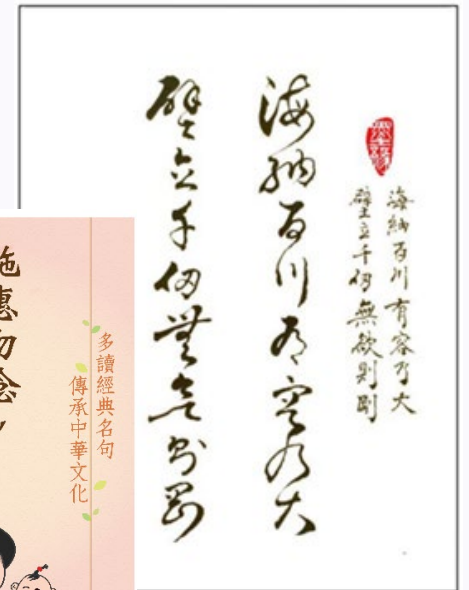 海納百川有容乃大
壁立千仞無欲則剛
海納百川有容乃大
壁立千仞無欲則剛
多讀經典名句
傳承中華文化
施惠勿念，